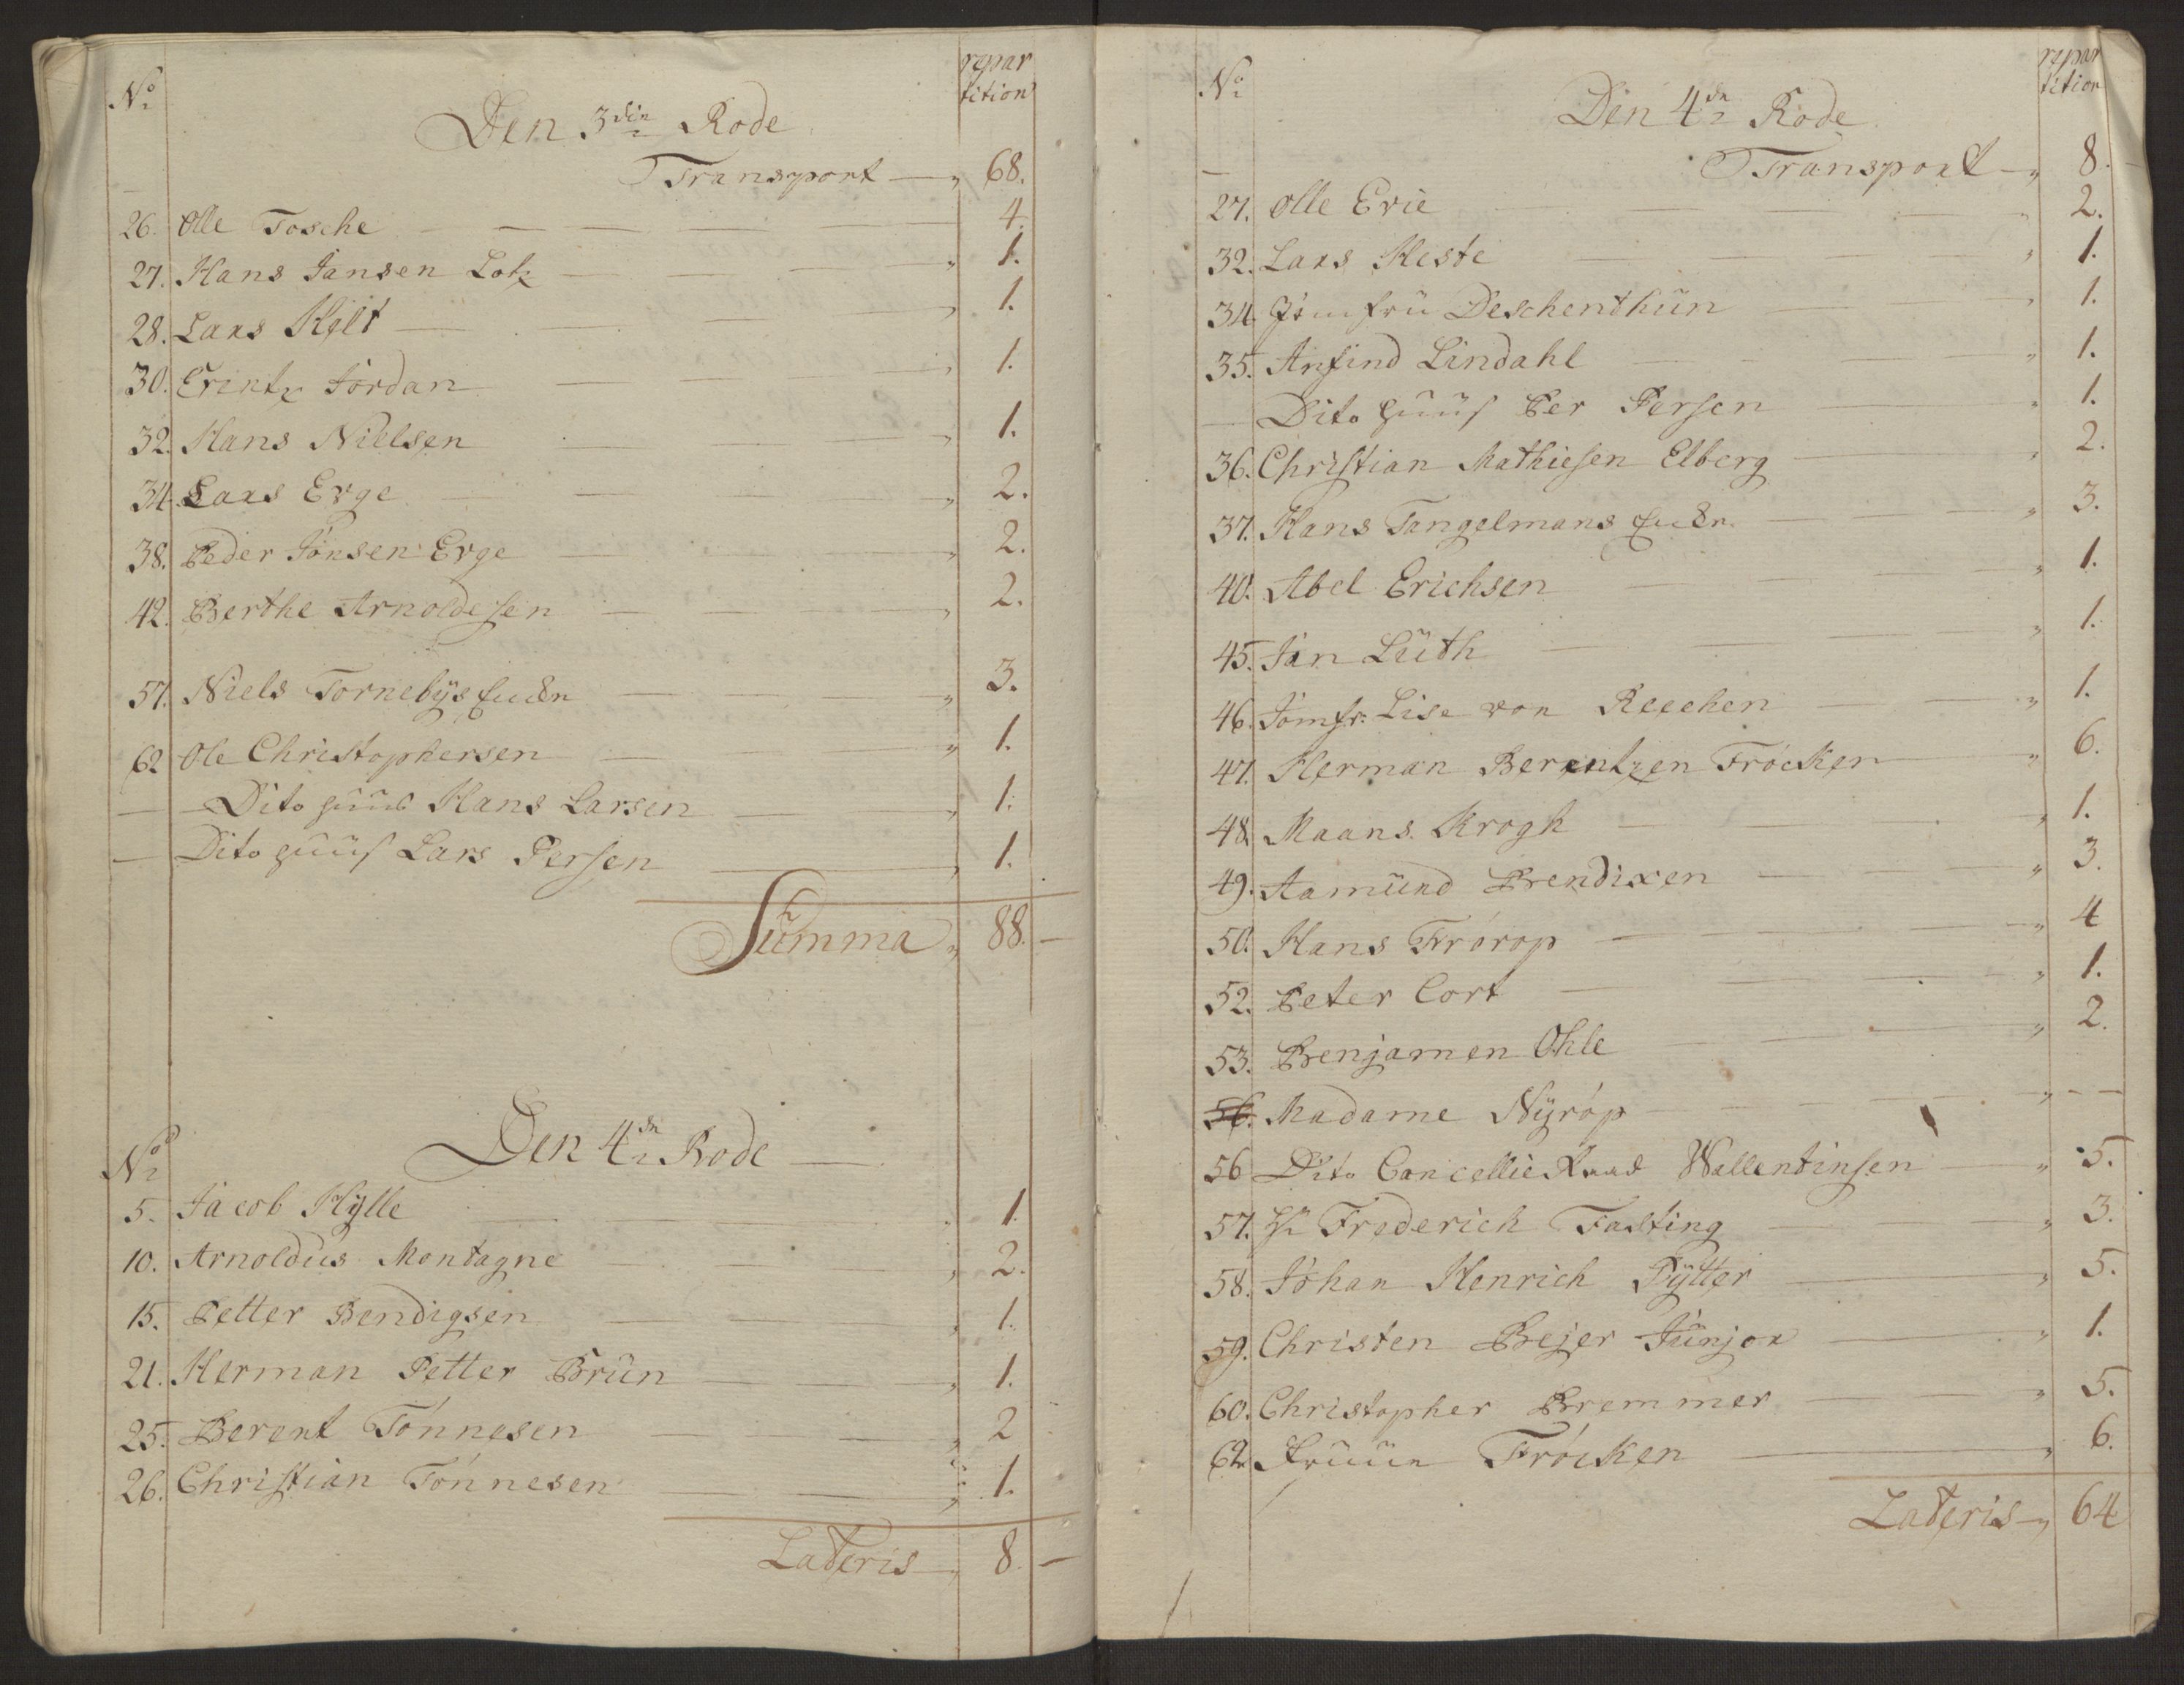 No
repar
tition
Den 3die Rode
Transport — " 68.
26. Olle Tosche 4.
27. Hans Jansen Lotz " 1.
28. Lars Kilt " 1.
30. Crintz Jordan " 1.
32. Hans Nielsen " 1.
34. Lars Erge " 2.
38. Peder Jonsen Erge " 2.
42. Berthe Arnoldesen " 2.
57. Niels Tornebys " 3.
62 Ole Christophersen " 1.
— Dito huus Hans Larsen " 1.
— Dito huus Lars Persen " 1.
Summa " 88. —
No
Den 4de Rode —
5. Jacob Hylle " 1
10. Arnoldus Montagne " 2.
15. Petter Bendigsen " 1.
21. Herman Petter Brün " 1.
25. Berent Tónnesen " 2
26. Christian Tónnesen " 1.
Lateris " 8. —
No
repar
tition
Den 4de Rode
— Transport — " 8.
27. Olle Erie " 2.
32. Lars Heste " 1.
34. Jomfru Deschenthün " 1.
35. Anfind Lindahl " 1.
— Dito huus Per Persen " 1.
36. Christian Mathiesen Elberg " 2.
37. Hans Tangelmans " 3.
40. Abel Erichsen " 1.
45. Jan Lüth " 1.
46. Jomfr: Lise von Reechen " 1.
47. Herman Berentzen Frócken " 6.
48. Maans Krogh " 1.
49. Aamünd Bendixen " 3.
50. Hans Frórop " 4
52. Peter Cort " 1.
53. Benjamen Ohle " 2.
56. Madame Nÿróp " — —
56 Dito Cancellie Raad Wallentinsen " 5.
57. Hr Frederich Fasting " 3.
58. Johan Henrich Pÿtter " 5.
59. Christen Bejer Jünjor " 1.
60. Christopher Bremmer " 5.
62. Fruün Frócken " 6.
Lateris — " 64